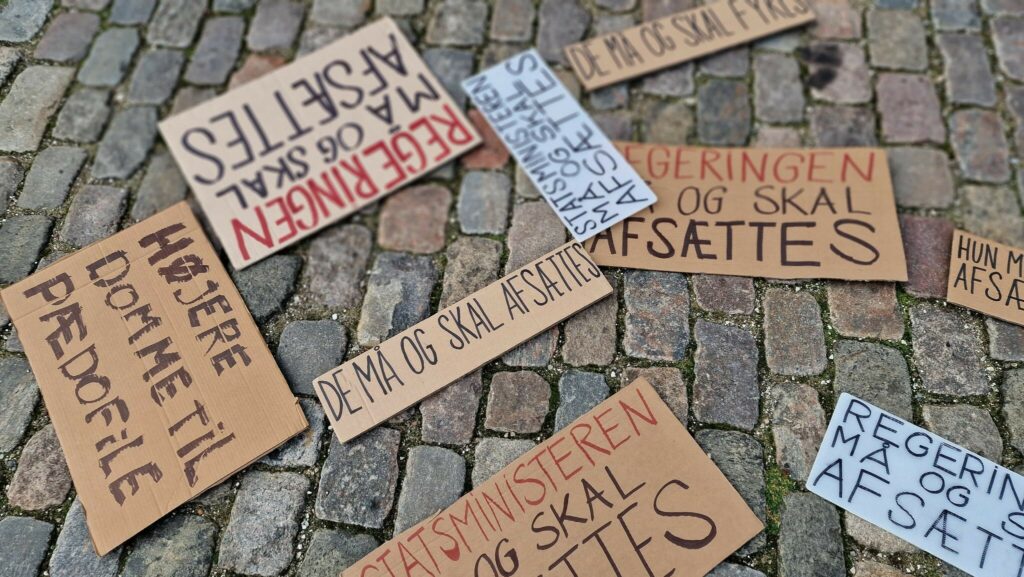 DE MÅ OG SKAL FYRES
REGERINGEN
MÅ OG SKAL
AFSÆTTES
STATSMINISTEREN
MÅ OG SKAL
AFSÆTTES
REGERINGEN
MÅ OG SKAL
AFSÆTTES
HUN M
AFSÆ
DE MÅ OG SKAL AFSÆTTES
HØJERE
DOMME TIL
PÆDOFiLE
STATSMINISTEREN
OG SKAL
TTES
REGERIN
MÅ OG
AFSÆTT